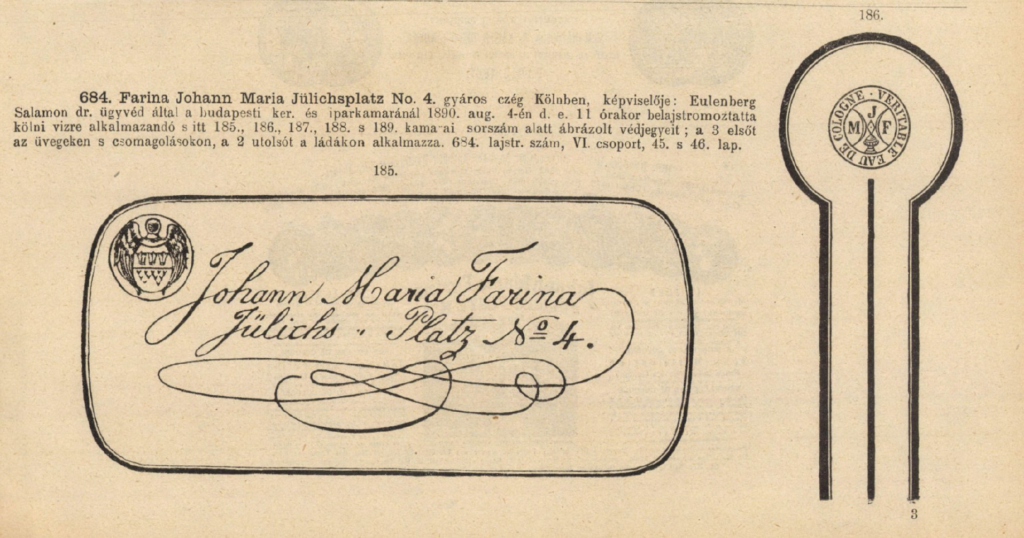 186.
684. Farina Johann Maria Jülichsplatz No. 4. gyáros czég Kölnben, képviselője: Eulenberg
Salamon dr. ügyvéd által a budapesti ker. és iparkamaránál 1890. aug. 4-én d. e. 11 órakor belajstromoztatta
kölni vizre alkalmazandó s itt 185., 186., 187., 188. s 189. kama ai sorszám alatt ábrázolt védjegyeit; a 3 elsőt
az üvegeken s csomagolásokon, a 2 utolsót a ládákon alkalmazza. 684. lajstr. szám, VI. csoport, 45. s 46. lap.
EAU DE COLOGNE · VERITABLE
J
M F
185.
Johann Maria Farina
Jülichs „ Platz No 4.
3